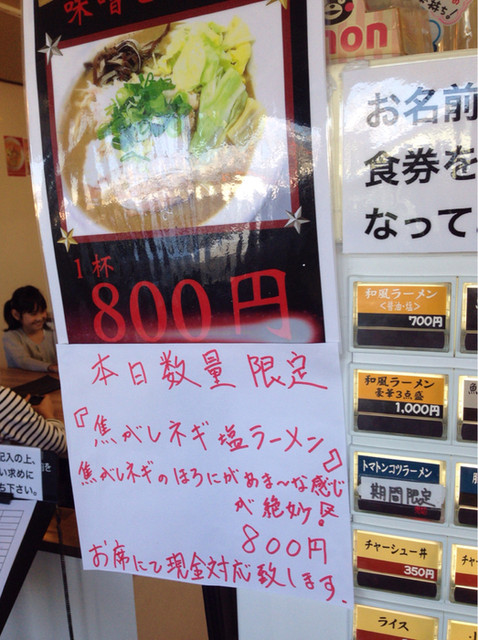 味噌
1杯
800円
本日数量限定
『焦がしネギ塩ラーメン』
焦がしネギのほろにがあま〜な感じ
が絶妙!
800円
お席にて現金対応致します.
non
お名前
食券を
なって
和風ラーメン
<醤油・塩>
700円
和風ラーメン
豪華3点盛
1,000円
トマトンコツラーメン
期間限定
チャーシュー丼
350円
ライス
記入の上、
い求めに
ち下さい。